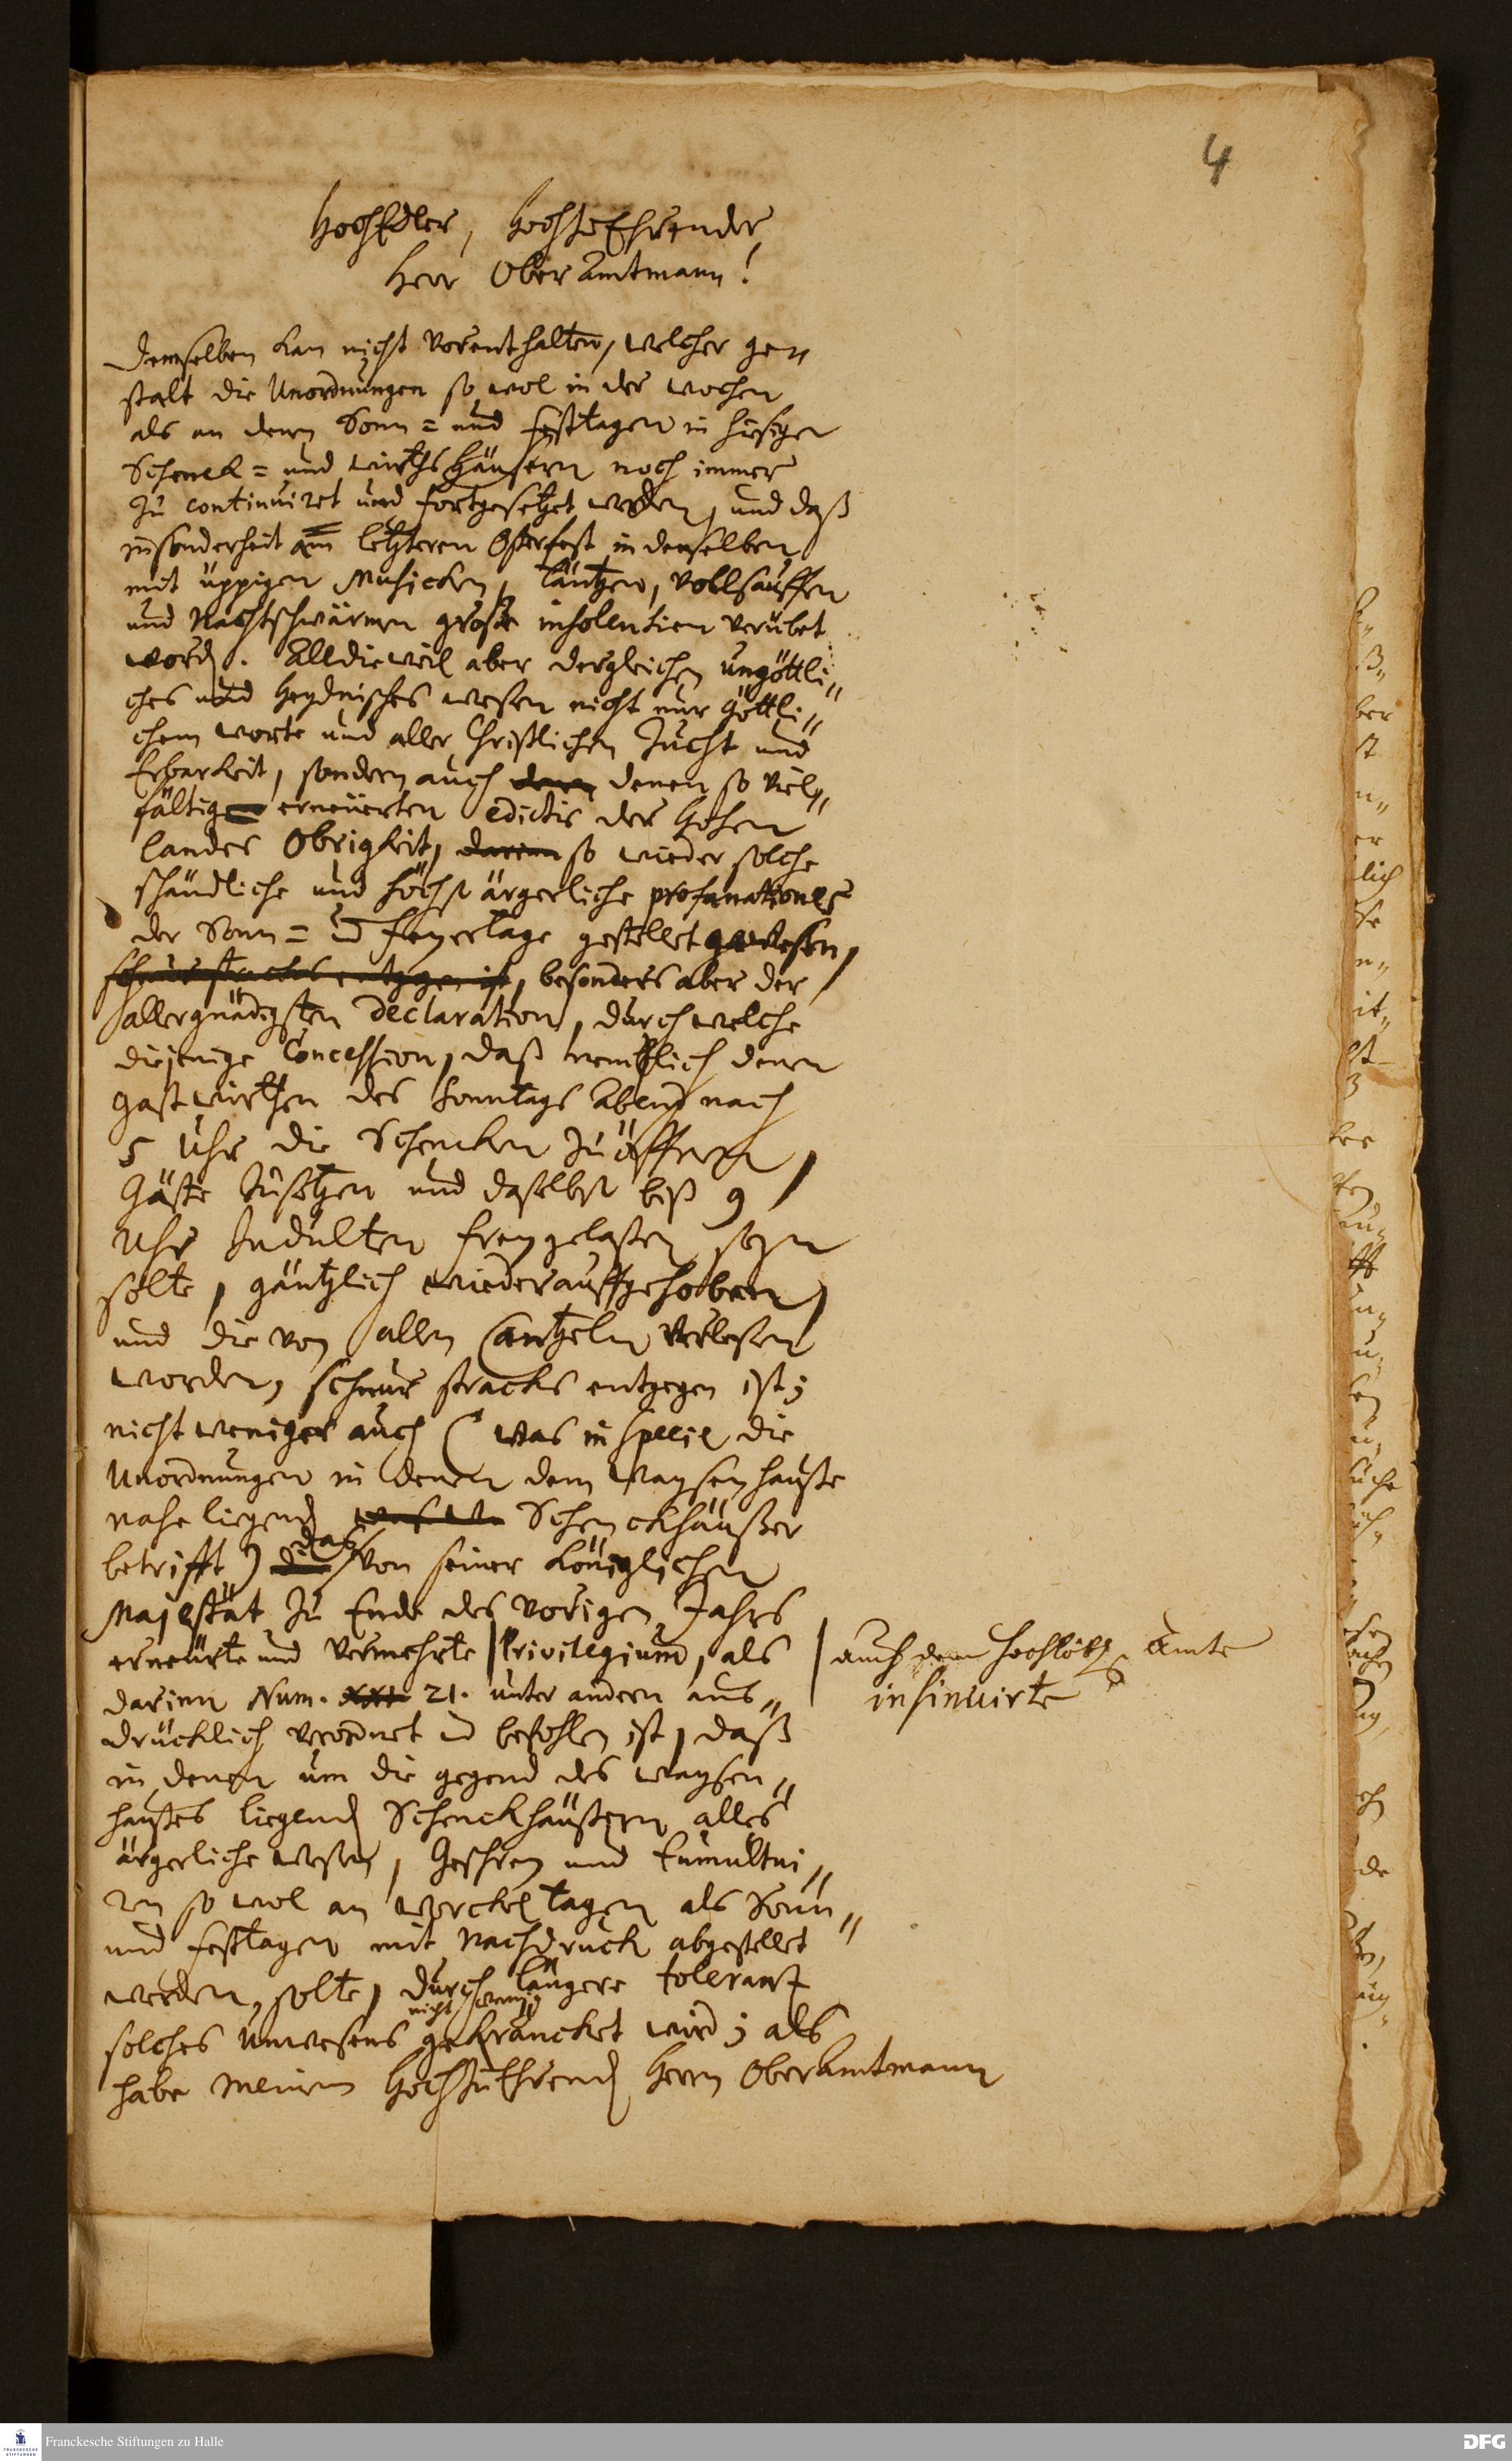 4
HochEdler, HochzuEhrender
Herr OberAmtmann!
Demselben kan nicht vorenthalten, welcher ge„
stalt die Unordnungen so wol in der wochen
als an denen Sonn= und Festtagen in hiesigen
Schenck= und wirthshäusern noch immer
zu continuiret und fortgesetzet werden, und daß
insonderheit am letzteren Osterfest in denselben
mit üppigen Musicken, Täntzen, Vollsauffen
und Nachtschwärmen große insolentien verübet
word. Alldieweil aber dergleichen ungöttli„
ches und heydnisches wesen nicht nur Göttli„
chem worte und aller Christlichen Zucht und
Erbarkeit, sondern auch denen so viel„
fältig erneuerten edictis der hohen
landes Obrigkeit, so wieder solche
schändliche und höchst ärgerliche profanationes
der Sonn= und Feyertage gestellet gewesen,
schnurstracks entgegen ist, besonders aber der
allergnädigsten Declaration, durch welche
diejenige Concession, daß nemblich denen
gastwirthen des Sonntags Abend nach
5 Uhr die Schencken zu öffnen,
Gäste zusetzen und daselbst biß 9
Uhr zudulten freygelaßen seyn
solte, gäntzlich wiederauffgehoben,
und die von allen Cantzeln verlesen
worden, schnur stracks entgegen ist;
nicht weniger auch (was in specie die
Unordnungen in denen dem Waysenhause
nahe liegend Schenckhäußer
betrifft) das von seiner Königlichen
Majestät zu Ende des vorigen Jahrs
erneürte und vermehrte Privilegium, als
auch dem hochlöbl. Amte
insinuirte
darinn Num. xxi 21. unter andern aus„
drücklich verordnet und befohlen ist, daß
in denen um die gegend des Waysen„
hauses liegend Schenckhäußern alles
ärgerliche wesen, Geschrey und tumultui„
ren so wol an Werckeltagen als Sonn„
und Festtagen mit Nachdruck abgestellet
werden solte, durch längere tolerantz
nicht wenig
solches unwesens gekräncket wird; als
habe meinen HochzuEhrend Herrn OberAmtmann
Franckesche Stiftungen zu Halle
DFG